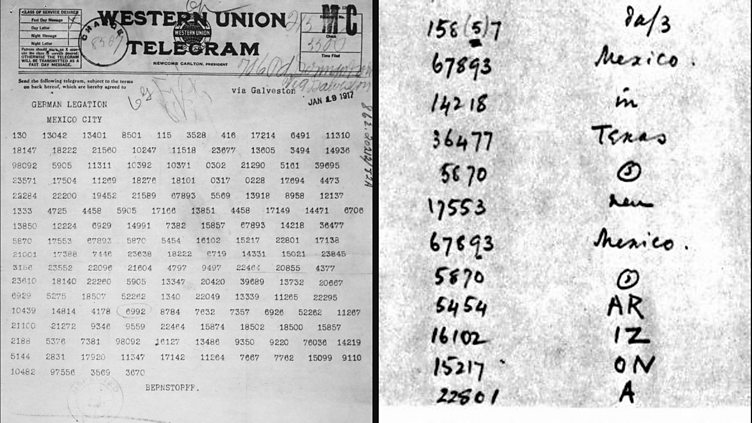 CLASS OF SERVICE DESIRED
Fast Day Message
Day Letter
Night Message
Night Letter
WESTERN UNION
WESTERN UNION
TELEGRAM
NEWCOMB CARLTON, PRESIDENT
Time Filed
Send the following telegram, subject to the terms
on back hereof, which are hereby agreed to
via Galveston
JAN 19 1917
GERMAN LEGATION
MEXICO CITY
130 13042 13401 8501 115 3528 416 17214 6491 11310
18147 18222 21560 10247 11518 23677 13605 3494 14936
98092 5905 11311 10392 10371 0302 21290 5161 39695
23571 17504 11269 18276 18101 0317 0228 17694 4473
22284 22200 19452 21589 67893 5569 13918 8958 12137
1333 4725 4458 5905 17166 13851 4458 17149 14471 6706
13850 12224 6929 14991 7382 15857 67893 14218 36477
5870 17553 67893 5870 5454 16102 15217 22801 17138
21001 17388 7446 23638 18222 6719 14331 15021 23845
3156 23552 22096 21604 4797 9497 22464 20855 4377
23610 18140 22260 5905 13347 20420 39689 13732 20667
6929 5275 18507 52262 1340 22049 13339 11265 22295
10439 14814 4178 6992 8784 7632 7357 6926 52262 11267
21100 21272 9346 9559 22464 15874 18502 18500 15857
2188 5376 7381 98092 16127 13486 9350 9220 76036 14219
5144 2831 17920 11347 17142 11264 7667 7762 15099 9110
10482 97556 3569 3670
BERNSTORFF.
158(5)7
67893 Mexico.
14218 in
36477 Texas
5870
17553 new
67893 Mexico.
5870
5454 AR
16102 IZ
15217 ON
22801 A